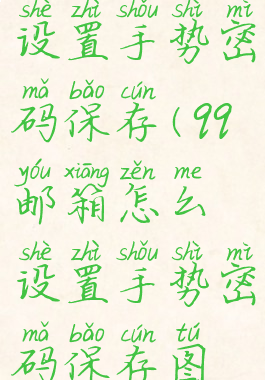 shè zhì shǒu shì mì
设置手势密
mǎ bǎo cún
码保存(99
yóu xiāng zěn me
邮箱怎么
shè zhì shǒu shì mì
设置手势密
mǎ bǎo cún tú
码保存图